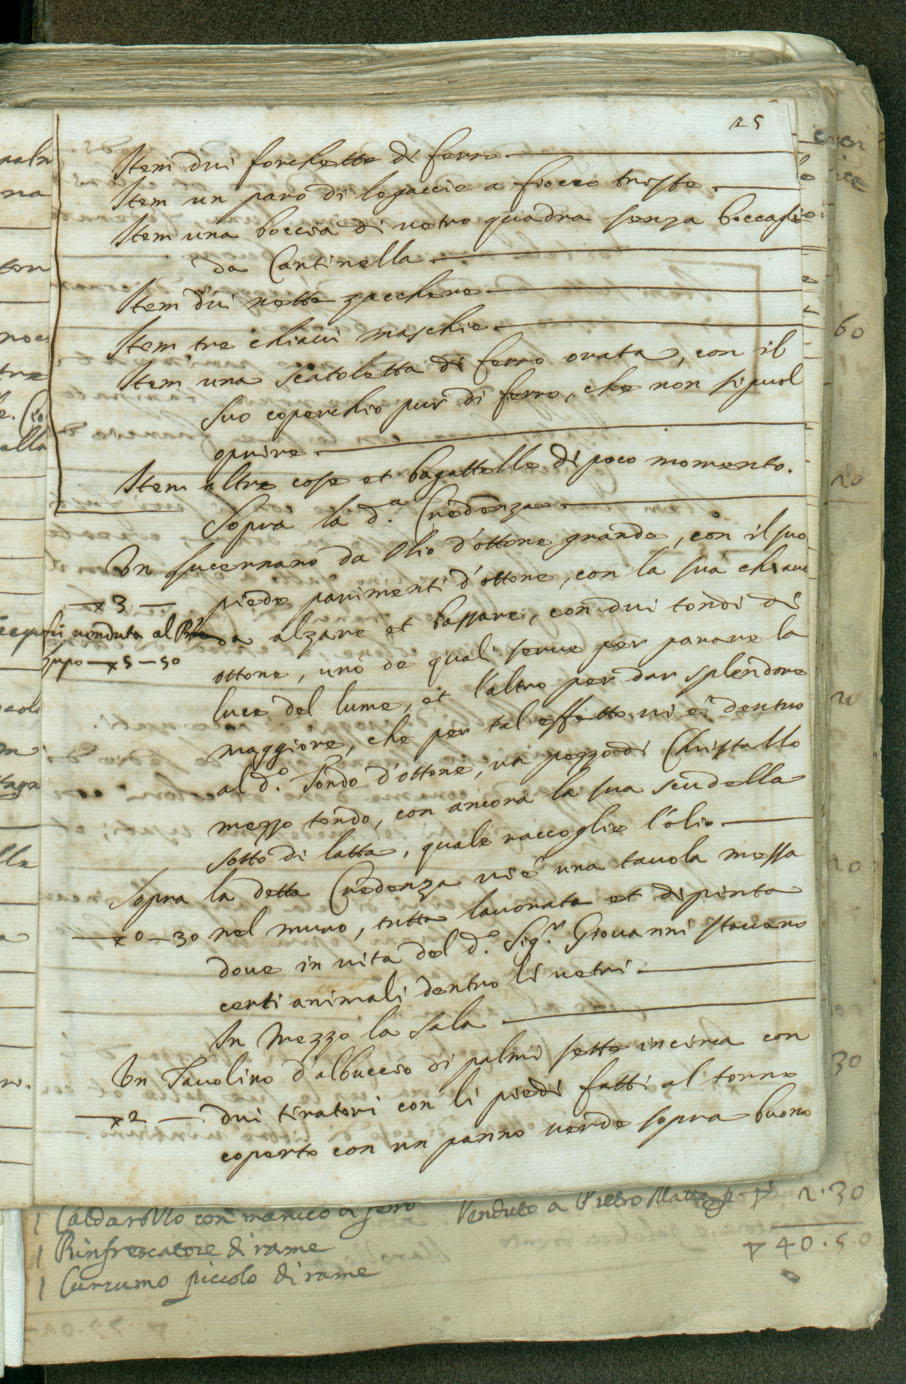 25
Item dui forchette di ferro
Item un paro di legaccie a fiocco triste.
Item una boccia di uetro quadra senza boccaglio
da Cantinella
Item dui nette zacchere
Item tre chiaui maschie
Item una scatoletta di ferro ouata, con il
suo coperchio pur di ferro, che non si puol
oprire
Item altre cose et bagattelle di poco momento.
Sopra la d.a Credenza
Un lucernaro da Olio d'ottone grande, con il suo
3 piede parimenti d'ottone, con la sua chiaue
fù uenduta al
5-50
da alzare et bassare, con dui tondi di
ottone, uno de quali serue per parare la
luce del lume, et l'altro per dar splendore
maggiore, che per tal effetto ui è dentro
al d.o tondo d'ottone, un pezzo di Christallo
mezzo tondo, con ancora la sua scudella
sotto di latta, quale raccoglie l'olio
Sopra la detta Credenza ui è una tauola messa
0-30 nel muro, tutta lauorata et dipinta
doue in uita del d.o Sig.r Giouanni staueno
certi animali dentro li uetri
In Mezzo la Sala
Un Tauolino d'albuccio di palmi sette incirca con
2 dui tiratori con li piedi fatti al torno
coperto con un panno uerde sopra buono
60
20
20
20
30
1 Caldarollo con manico di ferro Venduto a Pietro 2.30
1 Rinfrescatore di rame 40.50
1 Cucumo piccolo di rame